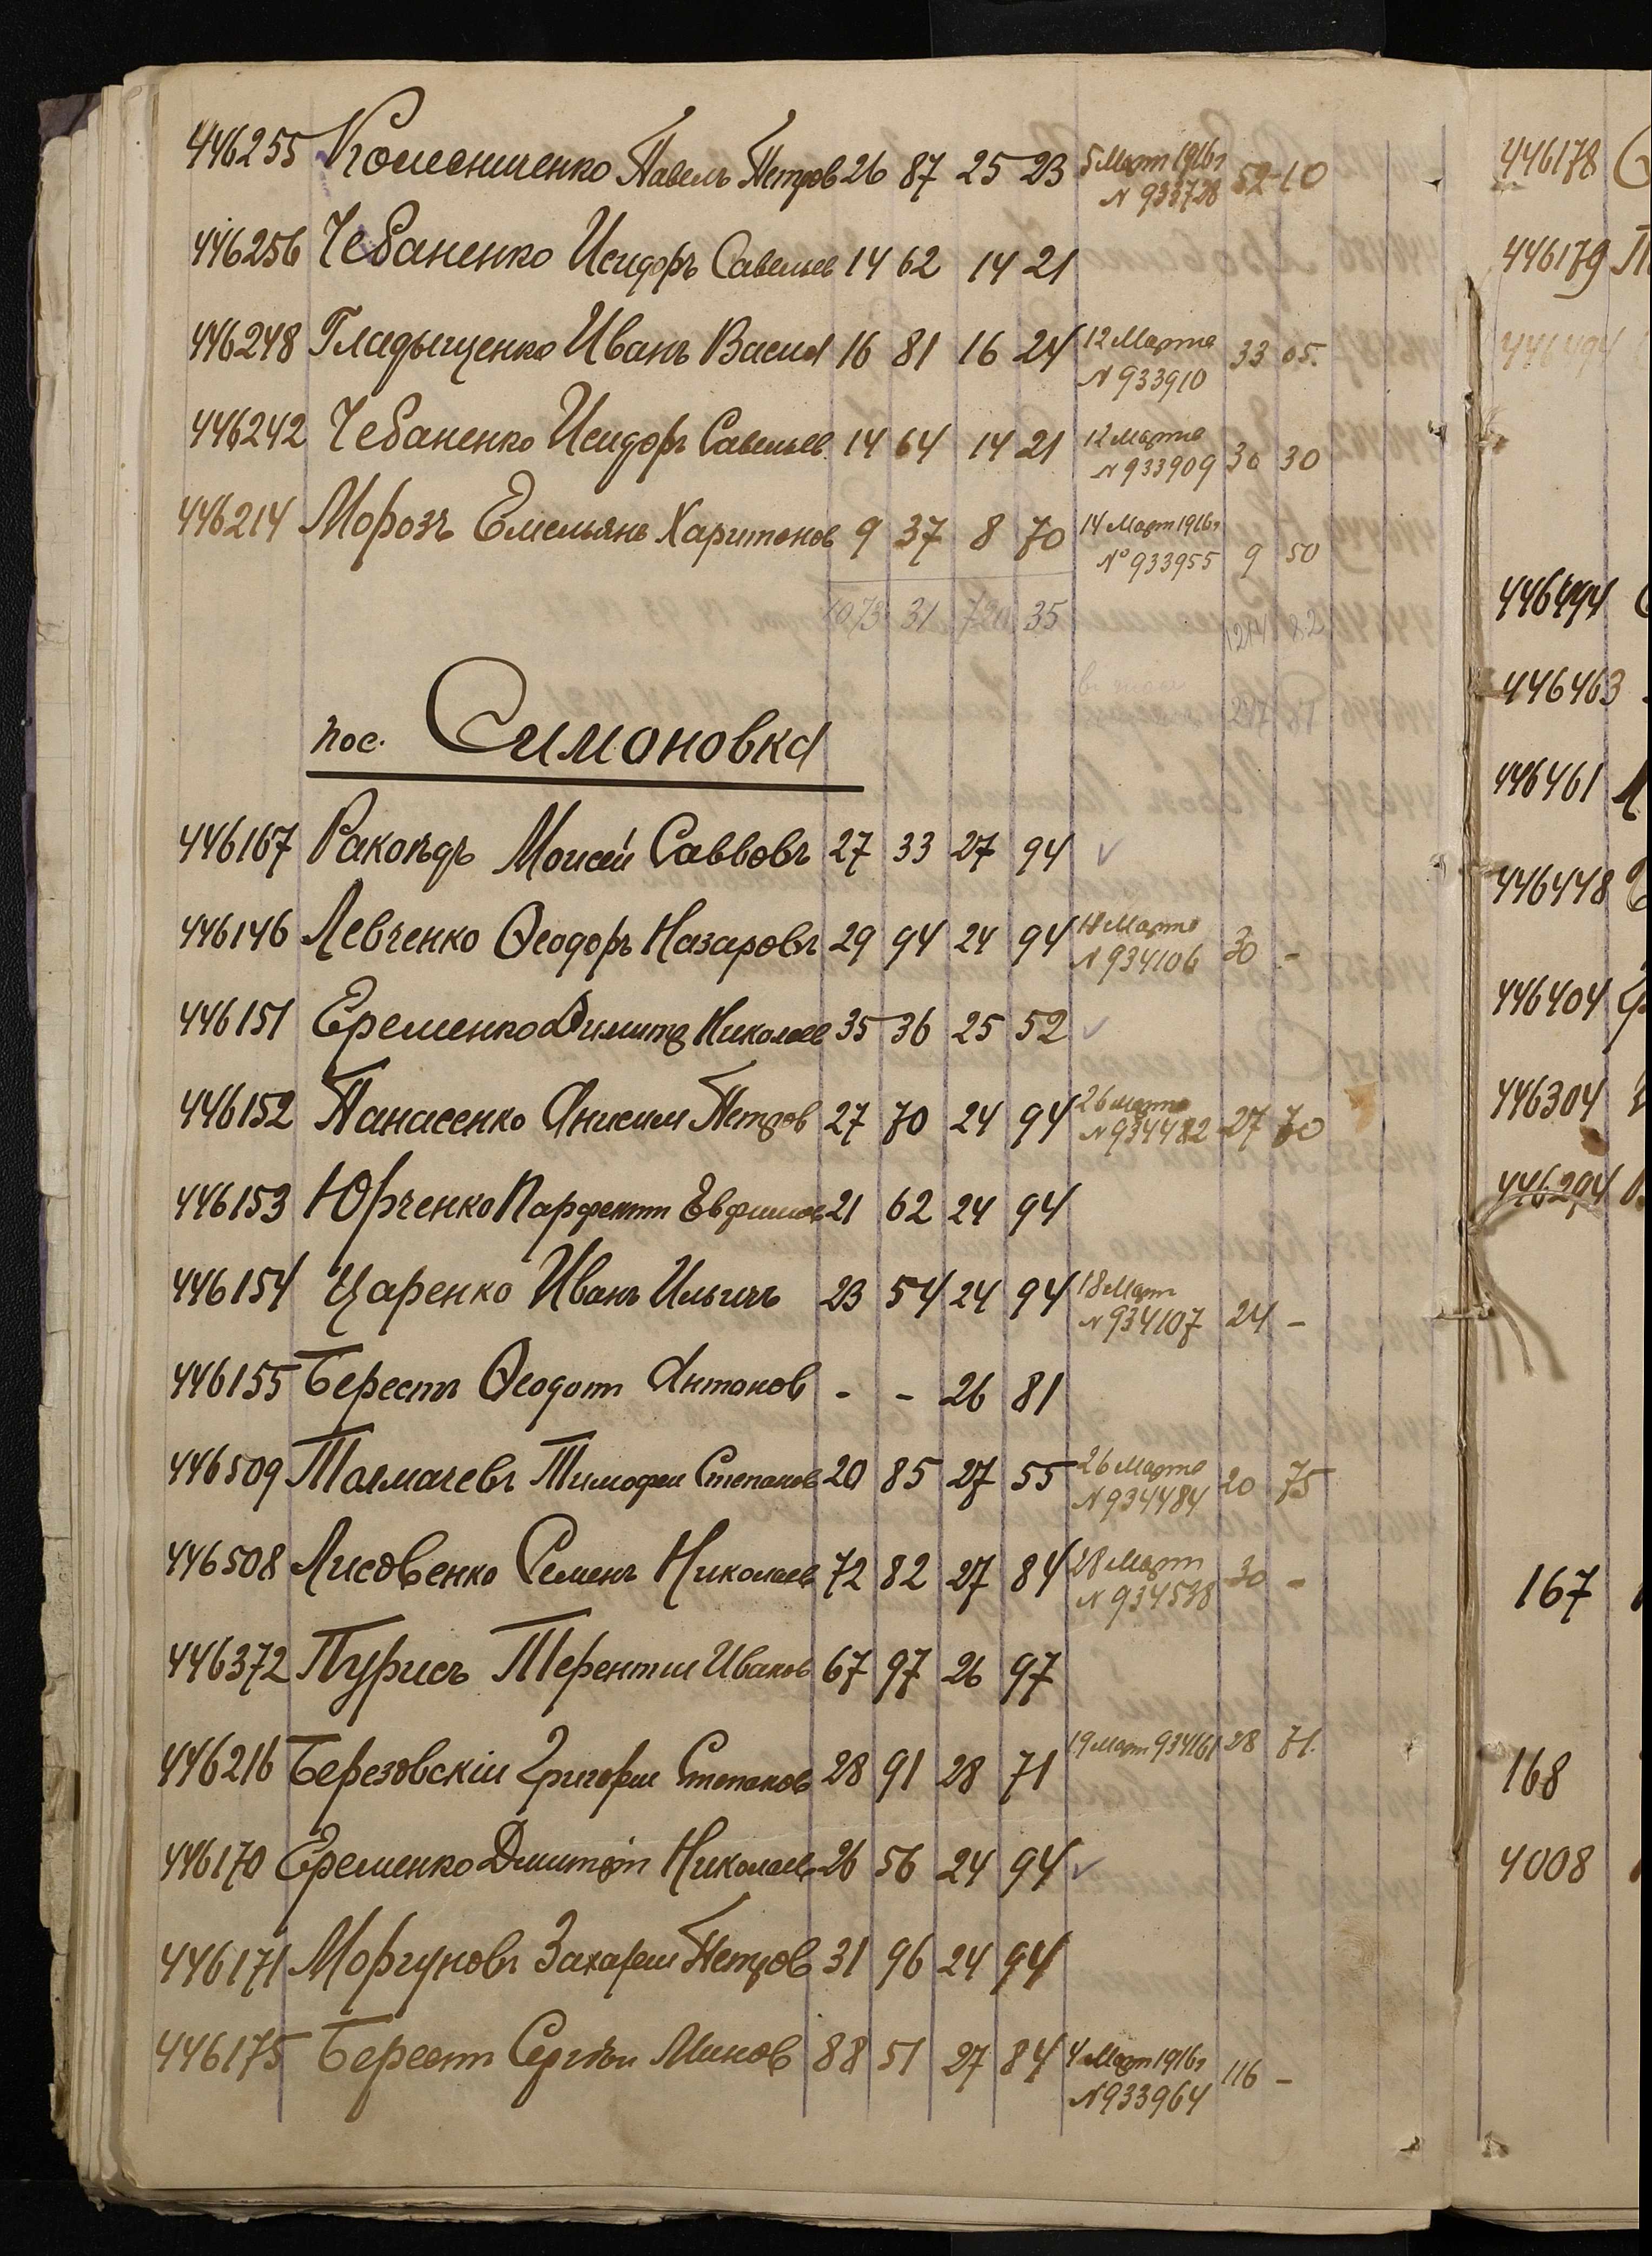 446255 Колесниченко Павелъ Петров 26 87 25 23 5 Март 1916 г N 933728 52 10
446256 Чебаненко Исидоръ Савельев 14 62 14 21
446248 Гладыщенко Иванъ Васил 16 81 16 24 12 Марта N 933910 33 05.
446242 Чебаненко Исидоръ Савельев 14 64 14 21 12 Марта N 933909 30 30
446214 Морозъ Емельянъ Харитонов 9 37 8 70 14 Март 1916 г № 933955 9 50
1073 31 720 35 1214 82
217 61
пос. Симоновка
446167 Ракоѣдъ Моисей Саввовъ 27 33 27 94 ✓
446146 Левченко Ѳеодоръ Назаровъ 29 94 24 94 18 Марта N 934106 30 -
446151 Еременко Димитр Николаев 35 36 25 52 ✓
446152 Панасенко Анисим Петров 27 70 24 94 26 марта N 934482 27 70
446153 Юрченко Парфентт Евфимов 21 62 24 94
446154 Царенко Иванъ Ильичъ 23 54 24 94 18 Март N 934107 24 -
446155 Берестъ Ѳеодот Антонов - - 26 81
446509 Толмачевъ Тимофеи Степанов 20 85 27 55 26 Марта N 934484 20 75
446508 Лисовенко Семенъ Николаев 72 82 27 84 28 Март N 934538 30 -
446372 Пурисъ Терентии Иванов 67 97 26 97
446216 Березовскіи Григории Степанов 28 91 28 71 19 Март 934161 28 71.
446170 Еременко Дмитріи Николаев 26 56 24 94 ✓
446171 Моргуновъ Захарии Петров 31 96 24 94
446175 Берест Сергѣи Минов 88 51 27 84 4 Март 1916 г N 933964 116 -
446178
446179
446494
446494
446463
446461
446448
446404
446304
446294
167
168
4008